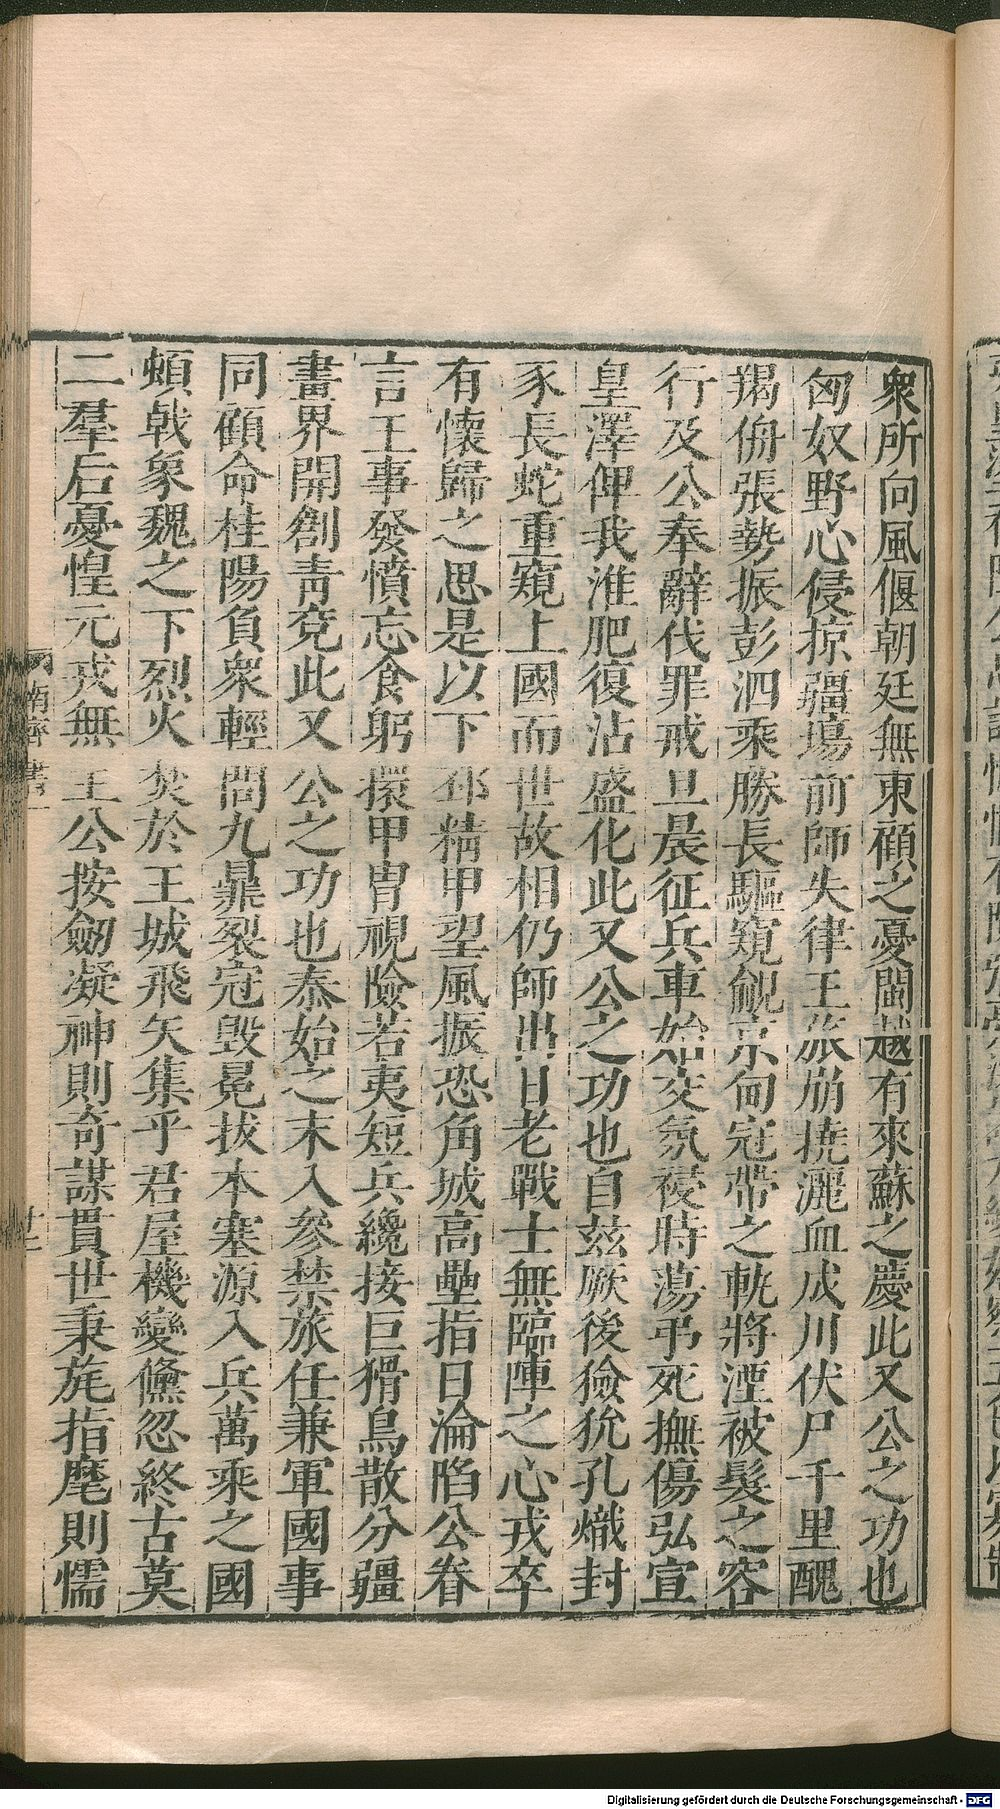 衆所向風偃朝廷無東顧之憂閩越有來蘇之慶此又公之功也
匈奴野心侵掠疆塲前師失律王旅崩撓灑血成川伏尸千里醜
羯侜張勢振彭泗乘勝長驅窺覦京甸冠帶之軌將湮被髮之容
行及公奉辭伐罪戒旦晨征兵車始交氛祲時蕩弔死撫傷弘宣
皇澤俾我淮肥復沾盛化此又公之功也自茲厥後獫狁孔熾封
豕長蛇重窺上國而世故相仍師出日老戰士無臨陣之心戎卒
有懷歸之思是以下邳精甲望風振恐角城高壘指日淪陷公眷
言王事發憤忘食躬擐甲冑視險若夷短兵纔接巨猾鳥散分疆
畫界開創青兗此又公之功也泰始之末入參禁旅任兼軍國事
同顧命桂陽負衆輕問九鼎裂冠毀冕拔本塞源入兵萬乘之國
頓戟象魏之下烈火焚於王城飛矢集乎君屋機變儵忽終古莫
二羣后憂惶元戎無主公按劒凝神則奇謀貫世秉旄指麾則懦
南齊書一
十二
Digitalisierung gefördert durch die Deutsche Forschungsgemeinschaft - DFG